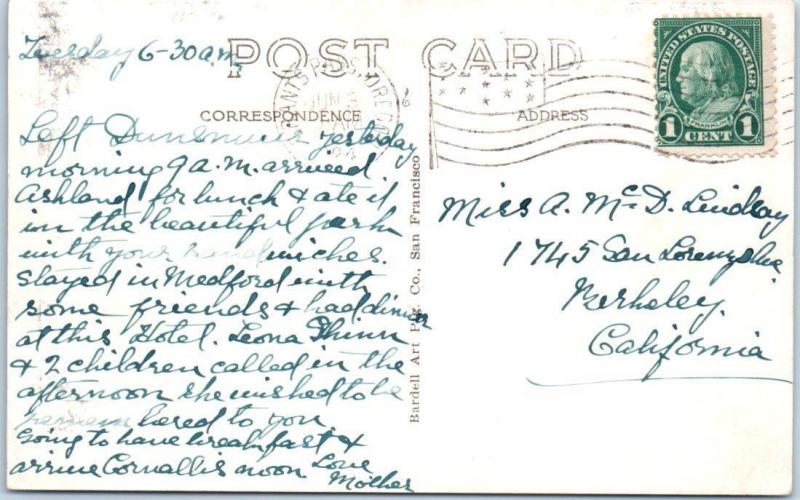 Tuesday 6-30 a.m.
POST CARD
GRANTS PASS, OREGON
JUN 5
CORRESPONDENCE
ADDRESS
UNITED STATES POSTAGE
FRANKLIN
1 CENT 1
Left Dunsmuir yesterday
morning 9 a.m. arrived
Ashland for lunch & ate it
in the beautiful park
with your sandwiches.
Stayed in Medford with
some friends & had dinner
at this Hotel. Leona Shinn
& 2 children called in the
afternoon she wished to be
remembered to you
Going to have breakfast &
arrive Corvallis noon Love
Mother
Bardell Art Ptg. Co., San Francisco
Miss A. McD. Lindsay
1745 San Lorenzo Ave
Berkeley
California